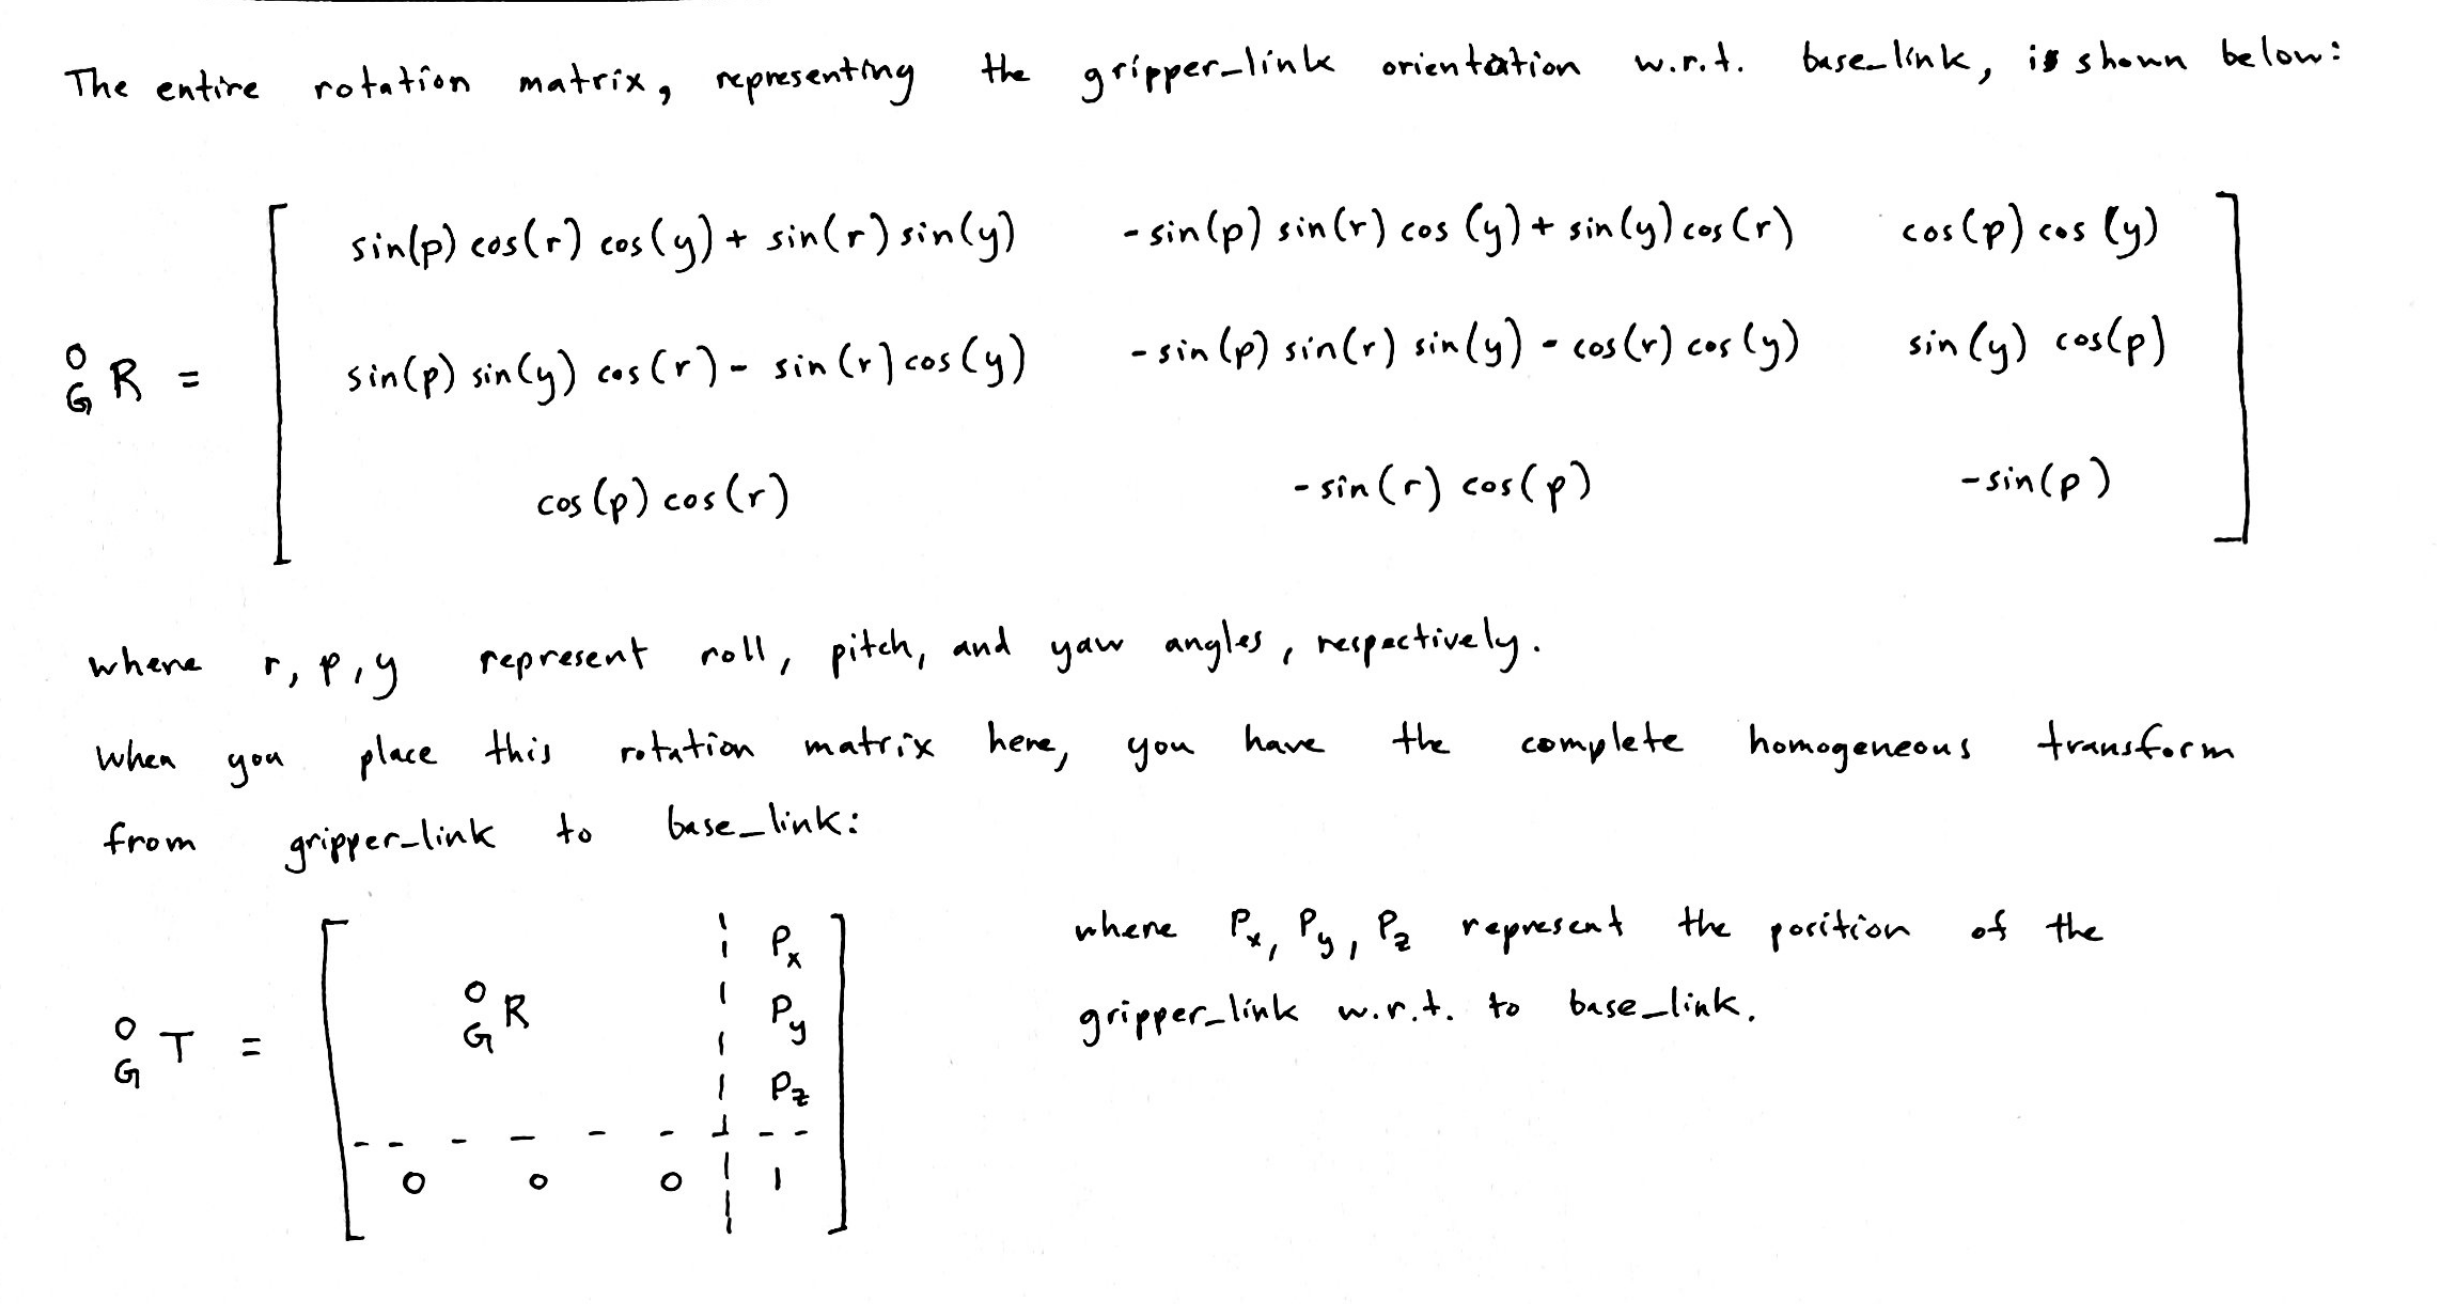 The entire rotation matrix, representing the gripper_link orientation w.r.t. base_link, is shown below:
sin(p) cos(r) cos(y) + sin(r) sin(y) -sin(p) sin(r) cos(y) + sin(y) cos(r) cos(p) cos(y)
O G R = sin(p) sin(y) cos(r) - sin(r) cos(y) -sin(p) sin(r) sin(y) - cos(r) cos(y) sin(y) cos(p)
cos(p) cos(r) -sin(r) cos(p) -sin(p)
where r, p, y represent roll, pitch, and yaw angles, respectively.
When you place this rotation matrix here, you have the complete homogeneous transform
from gripper_link to base_link:
Px
O G R Py
O G T = Pz
0 0 0 1
where Px, Py, Pz represent the position of the
gripper_link w.r.t. to base_link.